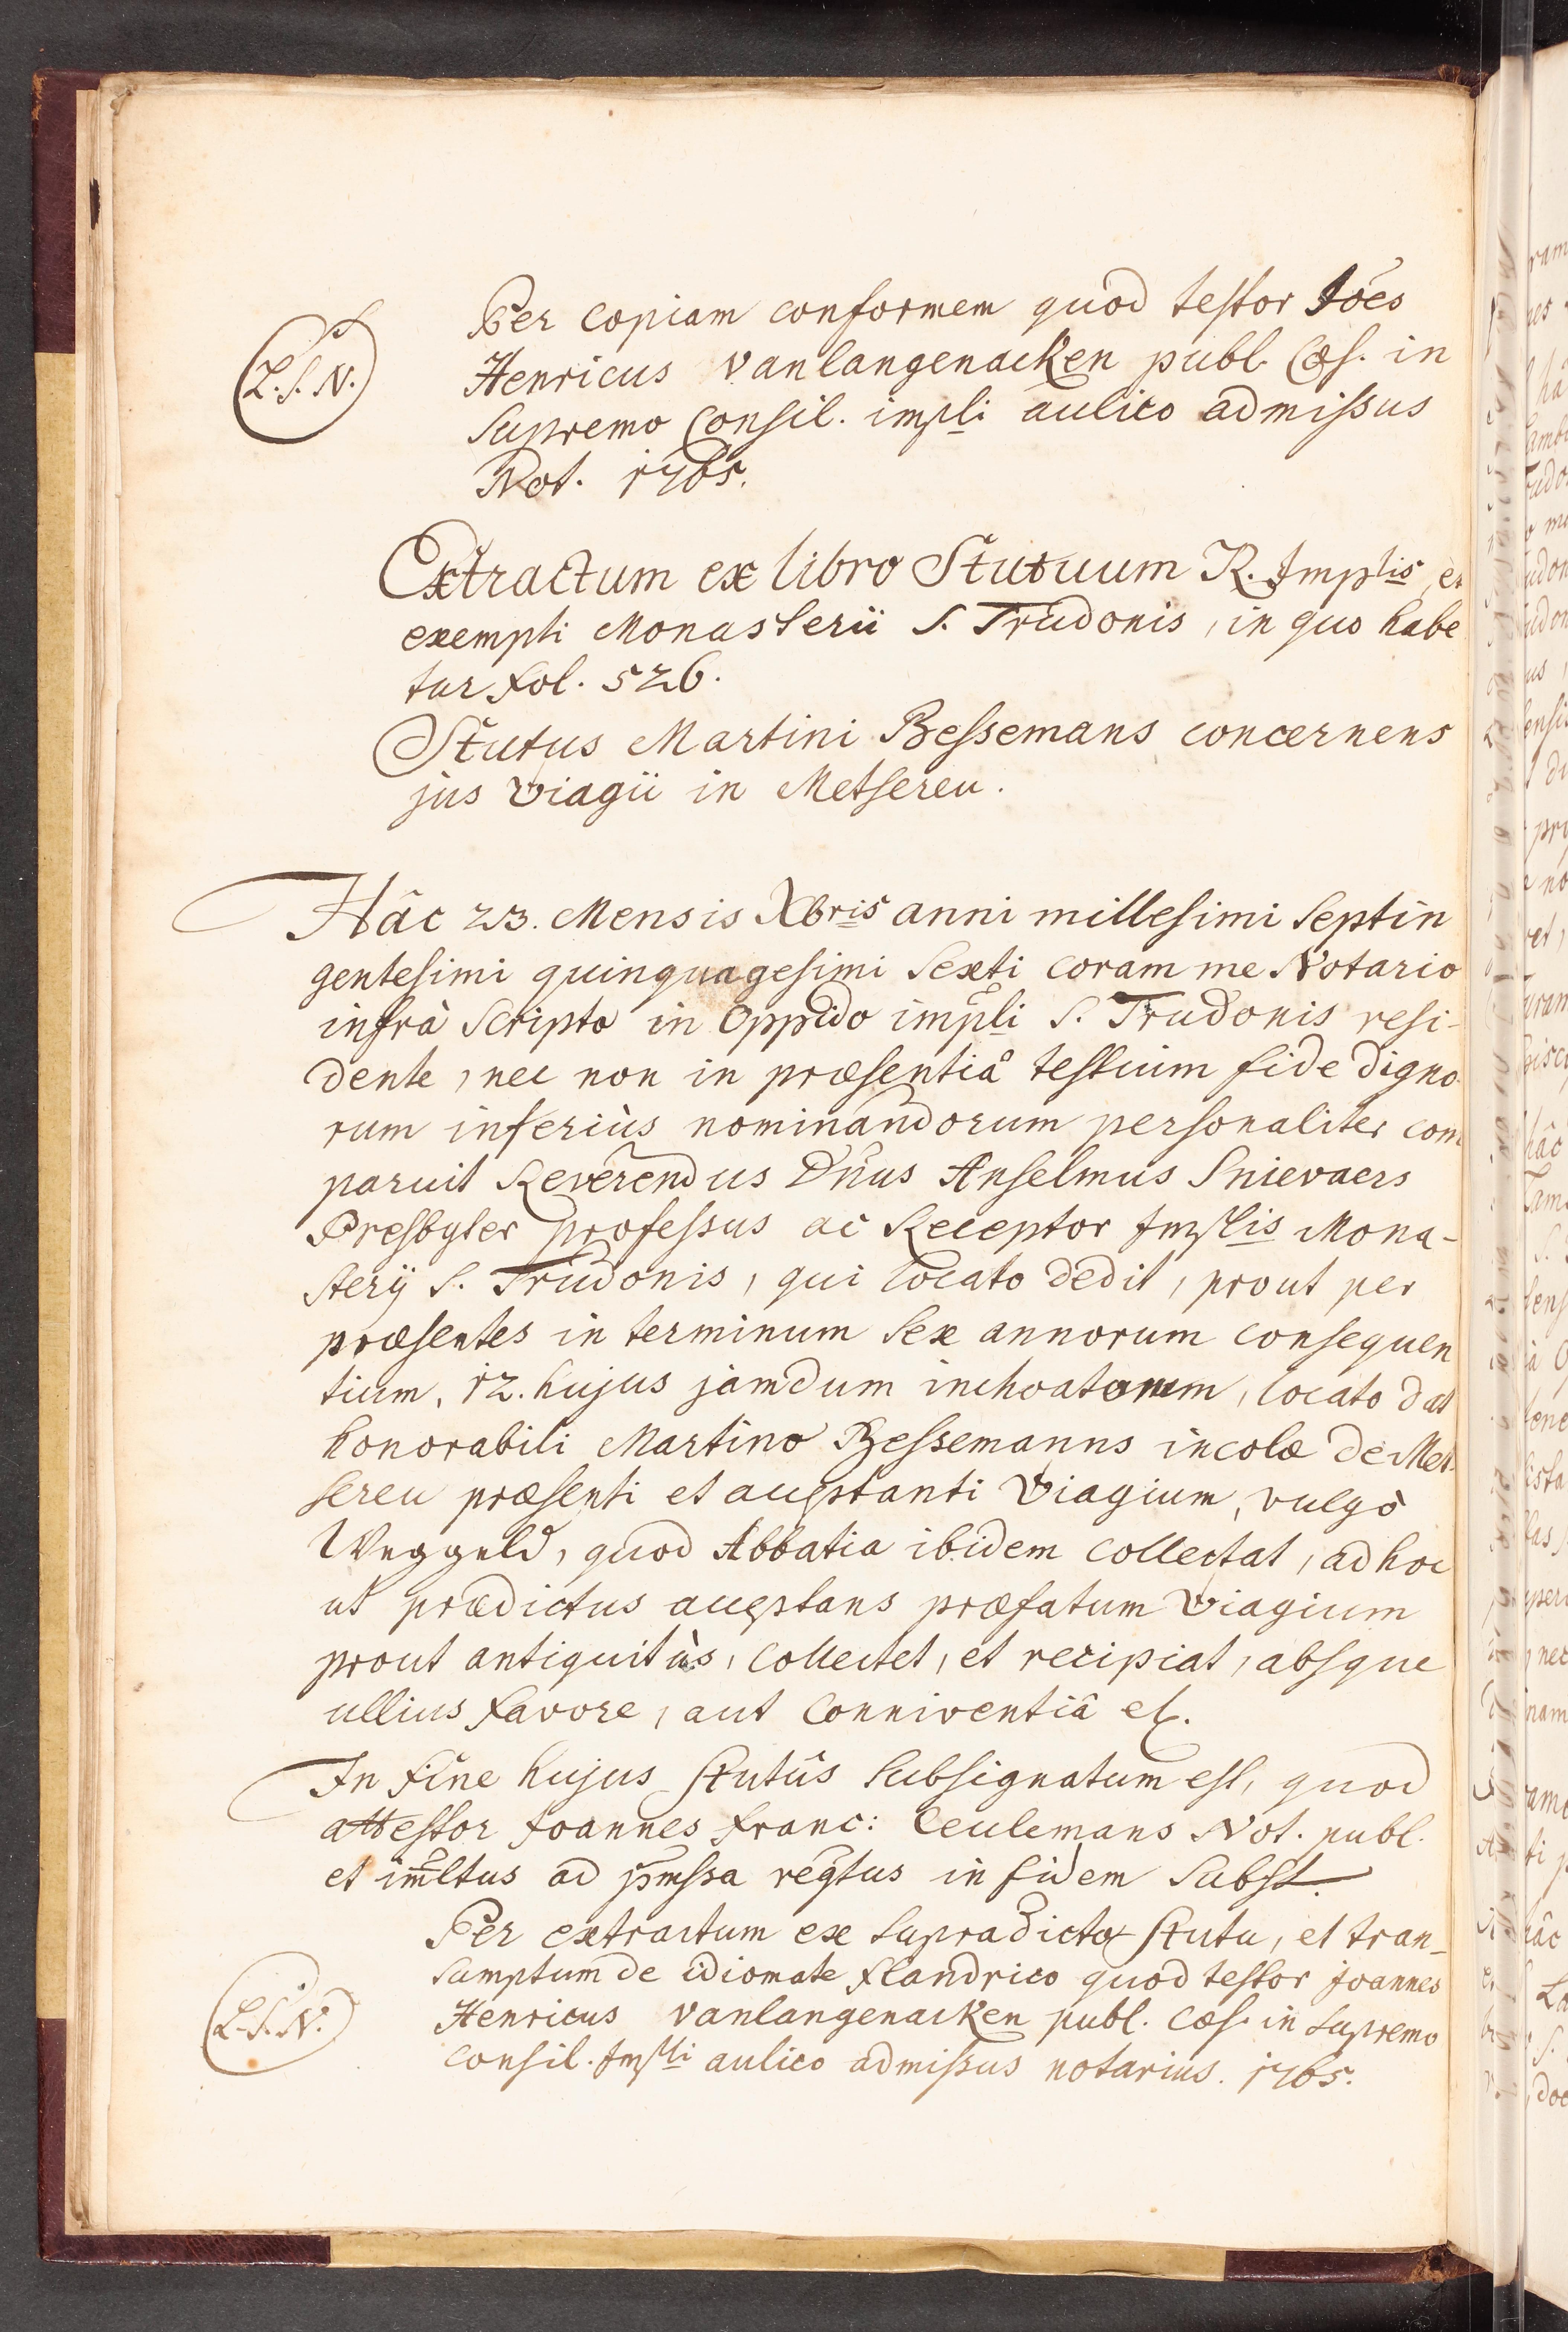 Per copiam conformem quod testor Jões
L.S.N.
Henricus Vanlangenacken publ. Cæs. in
Supremo Consil. impli aulico admissus
Not. 1765.
Extractum ex libro Stutuum R. Implis et
exempti Monasterii S. Trudonis, in quo habe
tur fol. 526.
Stutus Martini Bessemans concernens
jus viagii in Metsereu.
Hâc 23. Mensis Xbris anni millesimi Septin
gentesimi quinquagesimi Sexti coram me Notario
infrà Scripto in Oppido impli S. Trudonis resi-
dente, nec non in præsentiâ testium fide digno
rum inferiùs nominandorum personaliter com
paruit Reverendus Dñus Anselmus Snievaers
Presbyter professus ac Receptor Implis Mona-
sterÿ S. Trudonis, qui locato dedit, prout per
præsentes in terminum Sex annorum consequen
tium, 12. hujus jamdum inchoatorum, locato dat
honorabili Martino Bessemanns incolæ de Met-
sereu præsenti et aceptanti Viagium, vulgò
Weggeld, quod Abbatia ibidem collectat, ad hoc
ut prædictus aceptans præfatum Viagium
prout antiquitùs, collectet, et recipiat, absque
ullius favore, aut Conniventiâ etc.
In fine hujus Stutûs Subsignatum est, quod
attestor Joannes Franc: Ceulemans Not. publ.
et im̃ltus ad p̃mssa reg̃tus in fidem Subst.
Per extractum ex Supradicto Stutu, et tran-
sumptum de idiomate flandrico quod testor Joannes
L.S.N.
Henricus Vanlangenacken publ. Cæs. in Supremo
Consil. Impli aulico admissus notarius. 1765.